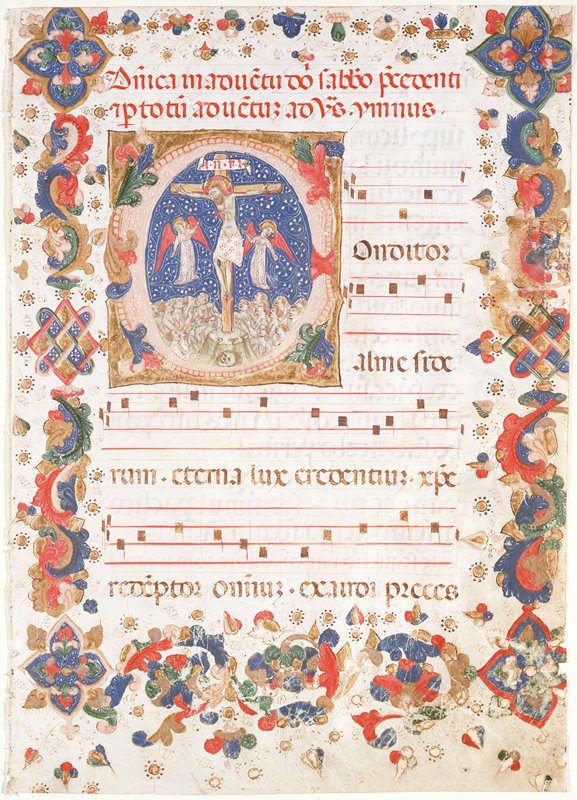 Dñica in adue͂tu do͂ sabb̅o p͂cedenti
ip̅o totū aduētuʒ ad Vs̅. ymnus.
I·N·R·I·
Onditor
alme side
rum. eterna lux credentiuʒ. xp̅e
redēptor omniuʒ. exaudi preces